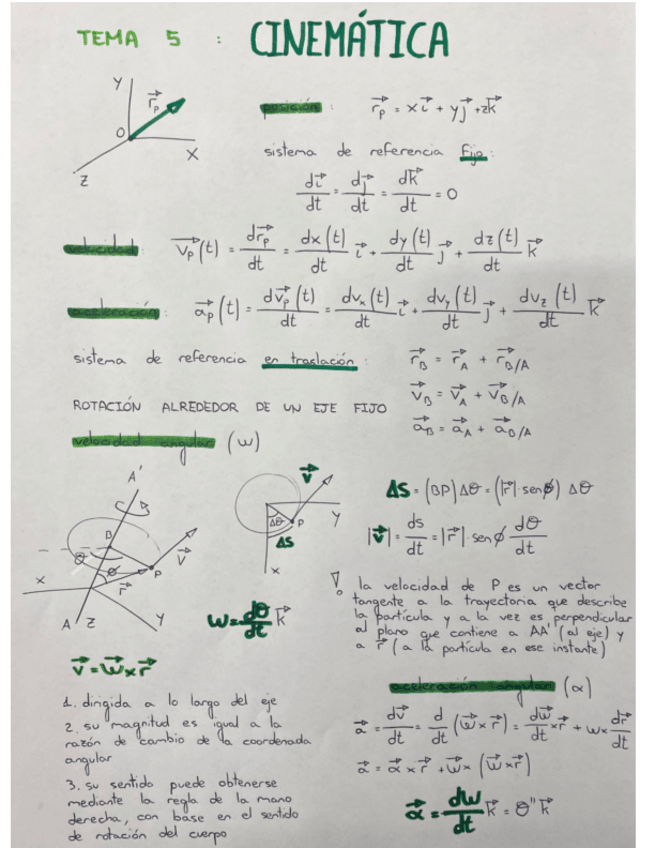 TEMA 5 : CINEMÁTICA
Y
r⃗p
O
X
Z
posición : r⃗p = x i⃗ + y j⃗ + z k⃗
sistema de referencia fijo:
di⃗/dt = dj⃗/dt = dk⃗/dt = 0
velocidad: v⃗p(t) = dr⃗p/dt = dx(t)/dt i⃗ + dy(t)/dt j⃗ + dz(t)/dt k⃗
aceleración: a⃗p(t) = dv⃗p(t)/dt = dvx(t)/dt i⃗ + dvy(t)/dt j⃗ + dvz(t)/dt k⃗
sistema de referencia en traslación:
r⃗B = r⃗A + r⃗B/A
v⃗B = v⃗A + v⃗B/A
a⃗B = a⃗A + a⃗B/A
ROTACIÓN ALREDEDOR DE UN EJE FIJO
velocidad angular (w)
A'
B
θ
ϕ
P
v⃗
r⃗
X
A
Z
Y
v⃗
Δθ
P
Y
ΔS
X
ΔS = (BP) Δθ = (|r⃗| senϕ) Δθ
|v⃗| = ds/dt = |r⃗| · senϕ dθ/dt
w = dθ/dt k⃗
v⃗ = w⃗ x r⃗
! la velocidad de P es un vector
tangente a la trayectoria que describe
la partícula y a la vez es perpendicular
al plano que contiene a AA' (al eje) y
a r⃗ (a la partícula en ese instante)
1. dirigida a lo largo del eje
2. su magnitud es igual a la
razón de cambio de la coordenada
angular
3. su sentido puede obtenerse
mediante la regla de la mano
derecha, con base en el sentido
de rotación del cuerpo
aceleración angular (α)
a⃗ = dv⃗/dt = d/dt (w⃗ x r⃗) = dw⃗/dt x r⃗ + w x dr⃗/dt
a⃗ = α⃗ x r⃗ + w⃗ x (w⃗ x r⃗)
α⃗ = dw/dt k⃗ = θ'' k⃗